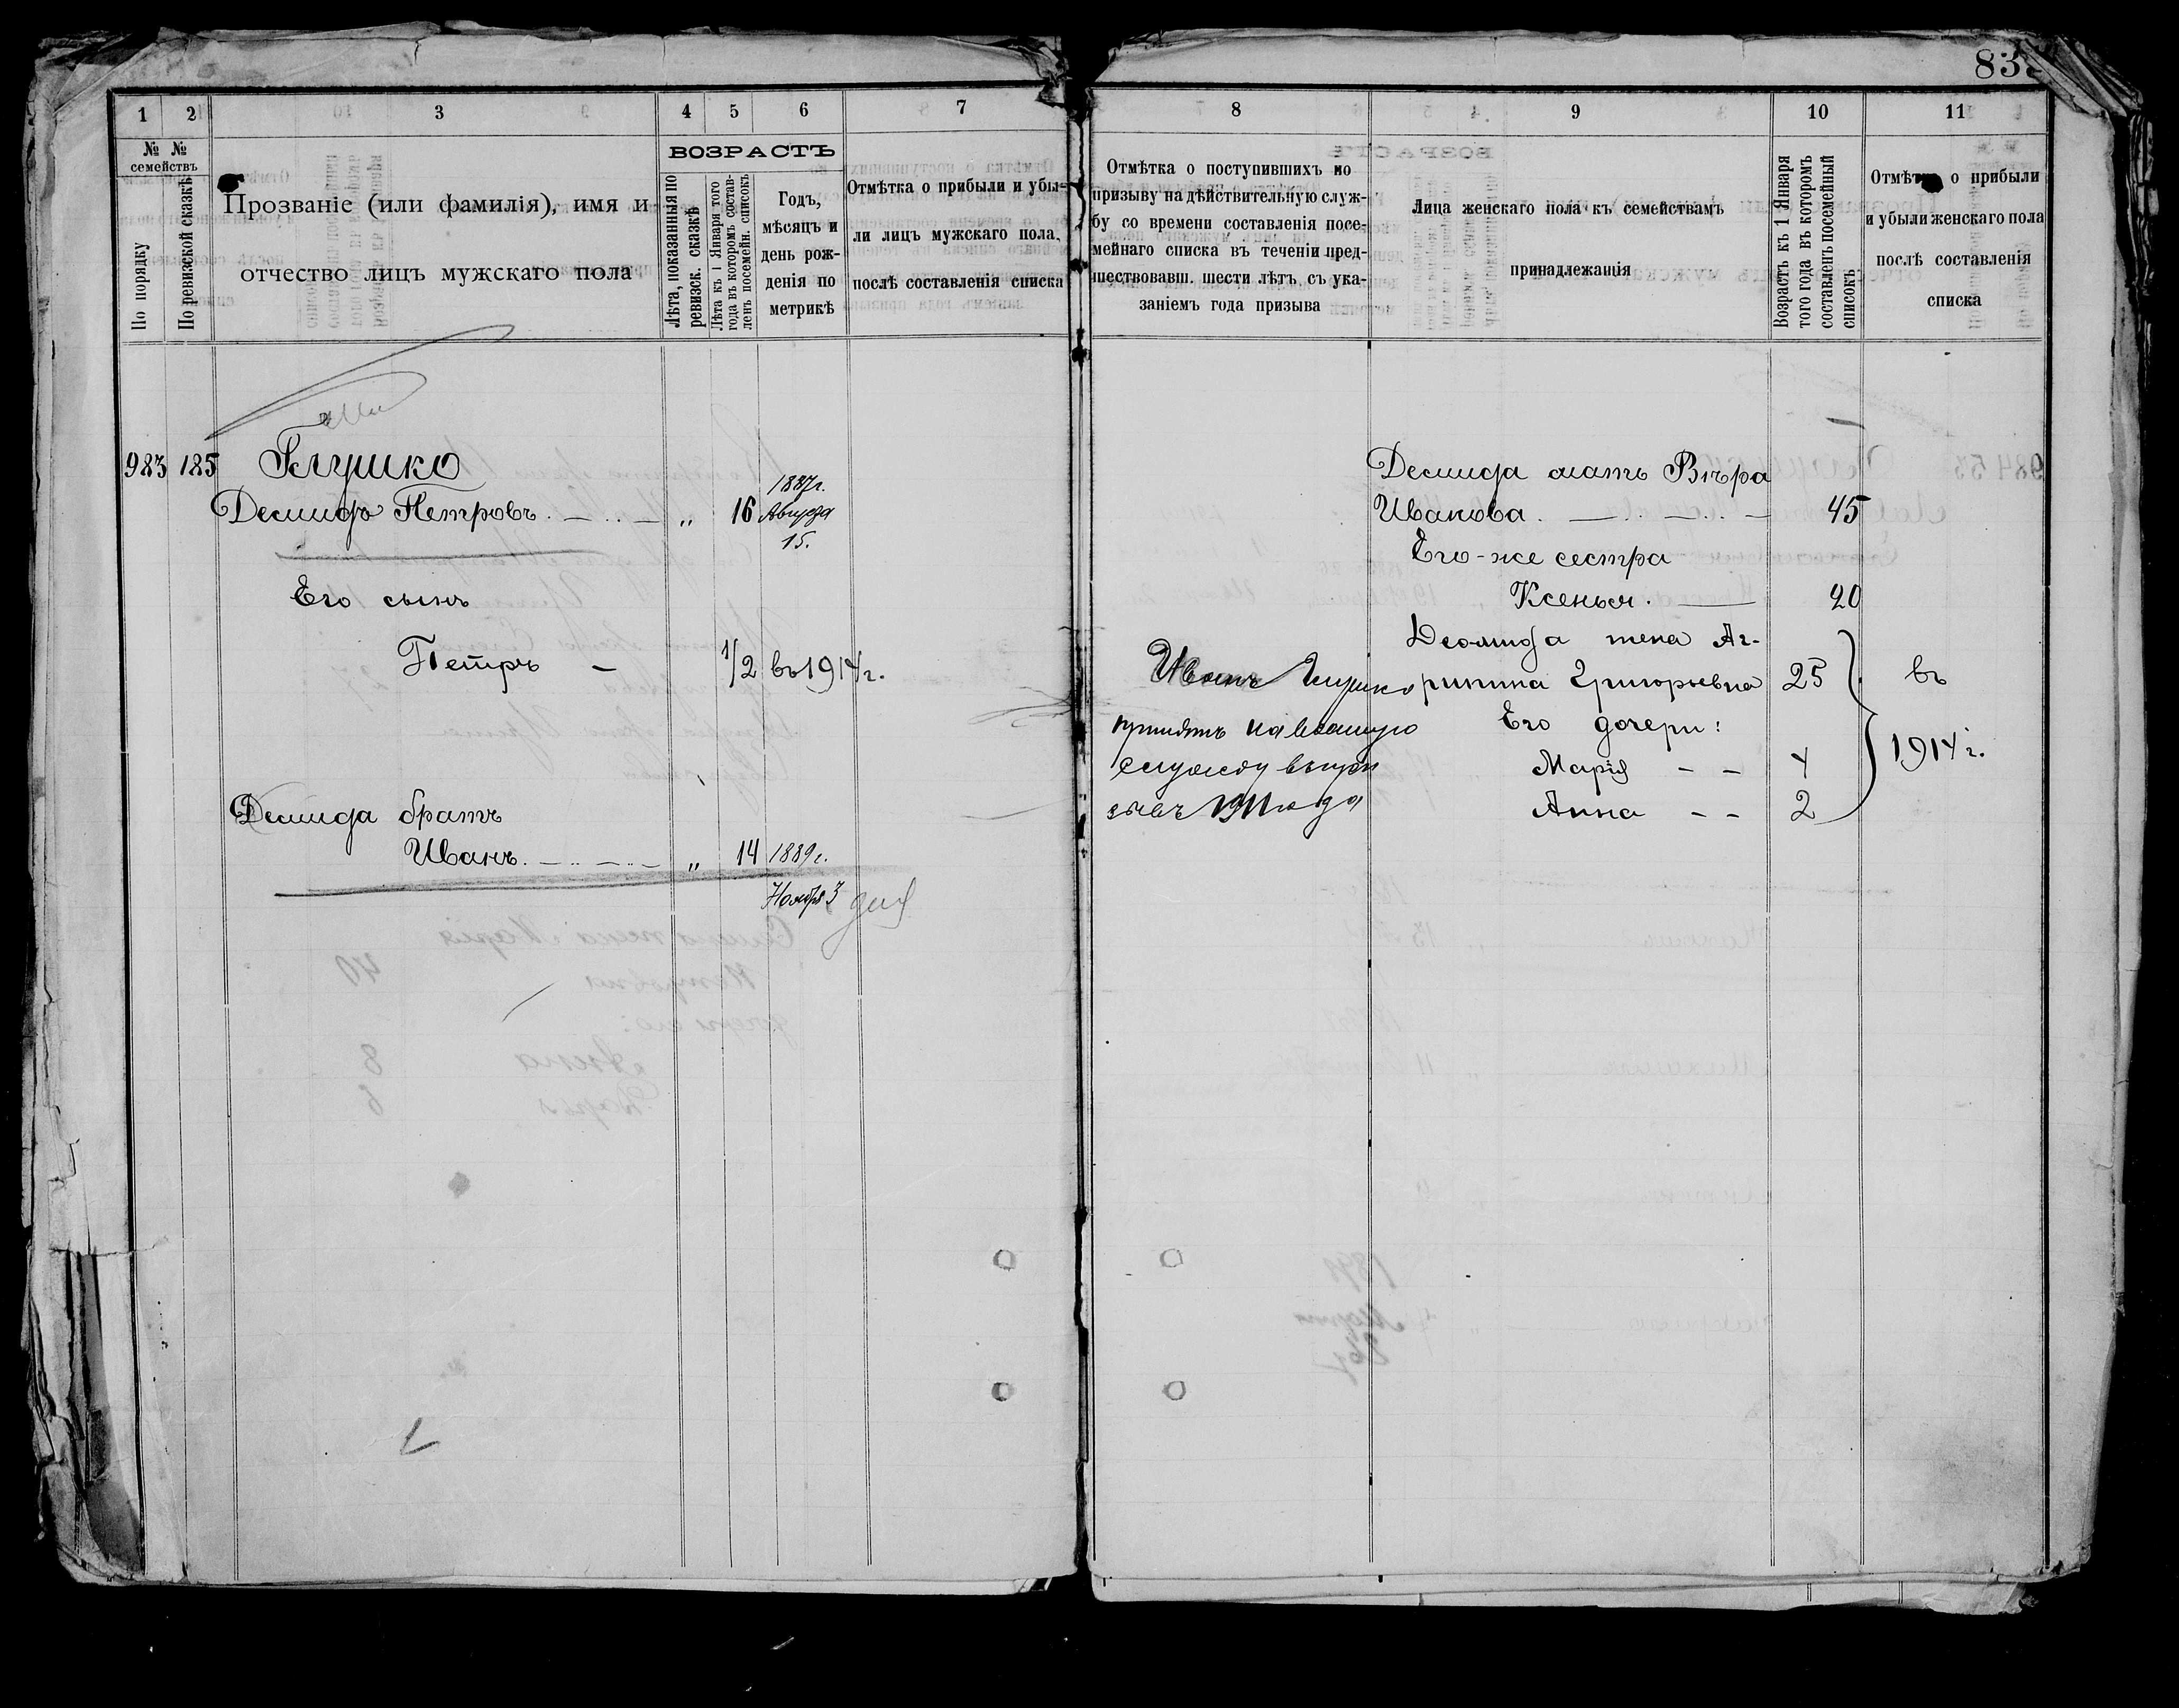 83
1 2 3 4 5 6 7
№ № семействъ
По порядку
По ревизской сказкѣ
Прозваніе (или фамилія), имя и
отчество лицъ мужскаго пола
ВОЗРАСТЪ
Лѣта, показанныя по
ревизск. сказкѣ
Лѣта къ 1 Января того
года въ которомъ состав-
ленъ посемейн. списокъ
Годъ,
мѣсяцъ и
день рож-
денія по
метрикѣ
Отмѣтка о прибыли и убы-
ли лицъ мужскаго пола,
послѣ составленія списка
983 185 Глушко
Демидъ Петровъ „ 16 1887г.
Августа
15.
Его сынъ
Петръ – 1/2 въ 1914г.
Демида братъ
Иванъ. „ 14 1889г.
Ноября 3
8 9 10 11
Отмѣтка о поступившихъ по
призыву на дѣйствительную служ-
бу со времени составленія посе-
мейнаго списка въ теченіи пред-
шествовавш. шести лѣтъ, съ ука-
заніемъ года призыва
Лица женскаго пола къ семействамъ
принадлежащія
Возрастъ къ 1 Января
того года въ которомъ
составленъ посемейный
списокъ
Отмѣтка о прибыли
и убыли женскаго пола
послѣ составленія
списка
Демида мать Вѣра
Иванова. 45
Его-же сестра
Ксенья. 20
Демида жена Аг-
рипина Григорьевна 25
Его дочери:
Марія – – 4
Анна – – 2
въ
1914г.
Иванъ Глушко
принятъ на военную
службу въ при
зывъ 1911 года